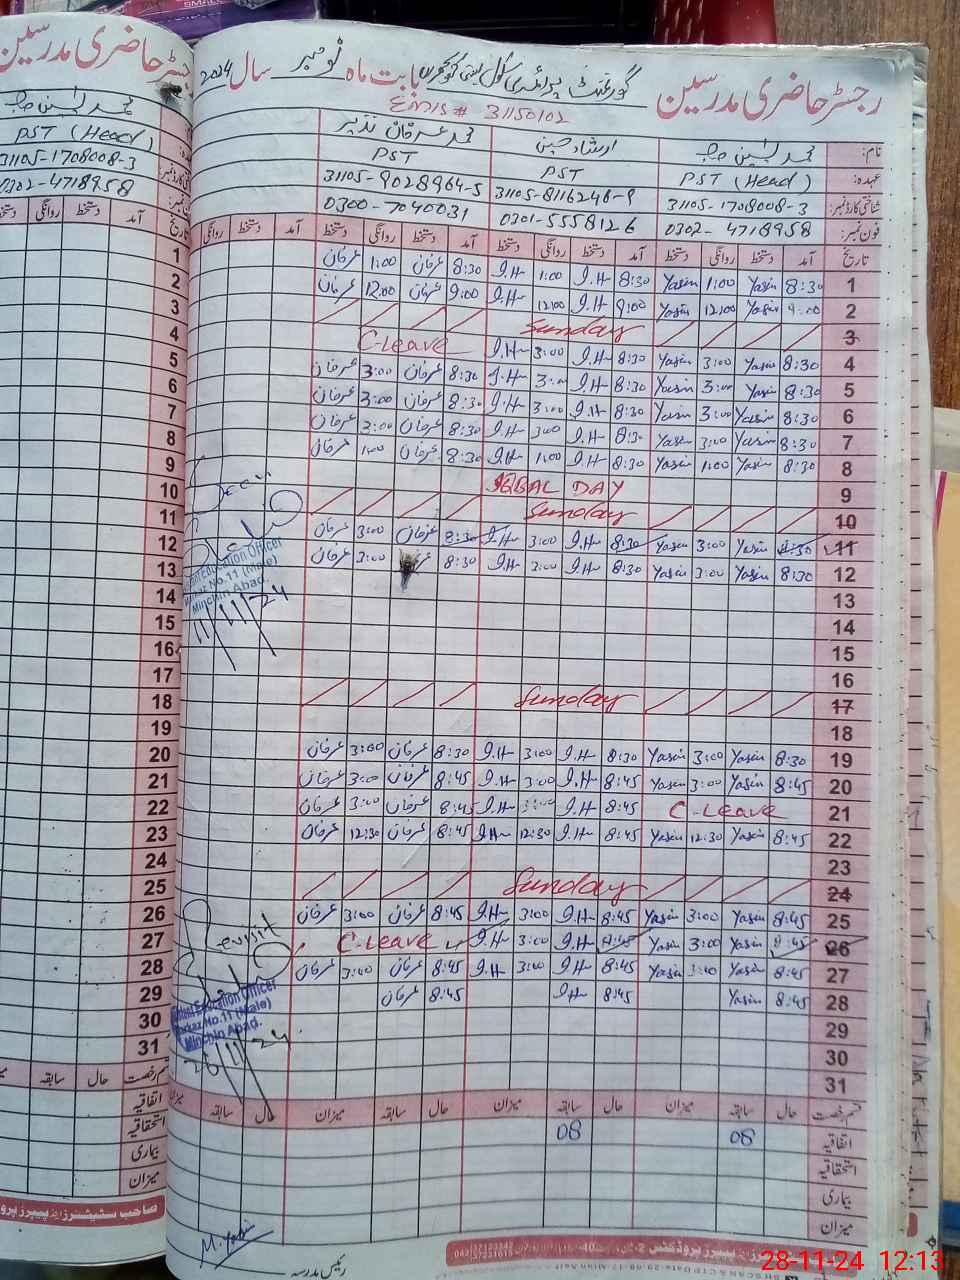 رجسٹر حاضری مدرسین گورنمنٹ پرائمری سکول بستی بابت ماہ نومبر سال 2024
Emis # 31150102
نام: محمد یٰسین ارشاد حسین محمد عرفان نذیر
عہدہ: PST (Head) PST PST
شناختی کارڈ نمبر: 31105-1708008-3 31105-8116246-9 31105-9028964-5
فون نمبر: 0302-4718958 0301-5558126 0300-7040031
تاریخ آمد دستخط روانگی دستخط آمد دستخط روانگی دستخط آمد دستخط روانگی دستخط آمد دستخط روانگی
1 8:30 Yasin 1:00 Yasin 8:30 I.H 1:00 I.H 8:30 عرفان 1:00 عرفان
2 9:00 Yasin 12:00 Yasin 9:00 I.H 12:00 I.H 9:00 عرفان 12:00 عرفان
3 Sunday
4 8:30 Yasin 3:00 Yasin 8:30 I.H 3:00 I.H C-Leave
5 8:30 Yasin 3:00 Yasin 8:30 I.H 3:00 I.H 8:30 عرفان 3:00 عرفان
6 8:30 Yasin 3:00 Yasin 8:30 I.H 3:00 I.H 8:30 عرفان 3:00 عرفان
7 8:30 Yasin 3:00 Yasin 8:30 I.H 3:00 I.H 8:30 عرفان عرفان
8 8:30 Yasin 1:00 Yasin 8:30 I.H 1:00 I.H 8:30 عرفان 1:00 عرفان
9 IQBAL DAY
10 Sunday
11 8:30 Yasin 3:00 Yasin 8:30 I.H 3:00 I.H 8:30 عرفان 3:00 عرفان
12 8:30 Yasin 3:00 Yasin 8:30 I.H 3:00 I.H 8:30 3:00 عرفان
13
14
15
16
17 Sunday
18
19 8:30 Yasin 3:00 Yasin 8:30 I.H 3:00 I.H 8:30 عرفان 3:00 عرفان
20 8:45 Yasin 3:00 Yasin 8:45 I.H 3:00 I.H 8:45 عرفان 3:00 عرفان
21 C-Leave 8:45 I.H 3:00 I.H 8:45 عرفان 3:00 عرفان
22 8:45 Yasin 12:30 Yasin 8:45 I.H 12:30 I.H 8:45 عرفان 12:30 عرفان
23
24 Sunday
25 8:45 Yasin 3:00 Yasin 8:45 I.H 3:00 I.H 8:45 عرفان 3:00 عرفان
26 8:45 Yasin 3:00 Yasin 8:45 I.H 3:00 I.H C-Leave
27 8:45 Yasin 3:00 Yasin 8:45 I.H 3:00 I.H 8:45 عرفان 3:00 عرفان
28 8:45 Yasin 8:45 I.H 8:45 عرفان
29
30
31
Education Officer
Markaz No.11 (Male)
Minchin Abad.
11/11/24
Revisit
Education Officer
Markaz No.11 (Male)
Minchin Abad.
26/11/24
قسم رخصت حال سابقہ میزان حال سابقہ میزان حال سابقہ میزان حال سابقہ میزان
اتفاقیہ 08 08
استحقاقیہ
بیماری
میزان
M. Yasin
رئیس مدرسہ
رجسٹر حاضری مدرسین
محمد یٰسین
PST (Head)
31105-1708008-3
0302-4718958
تاریخ آمد دستخط روانگی دستخط
1
2
3
4
5
6
7
8
9
10
11
12
13
14
15
16
17
18
19
20
21
22
23
24
25
26
27
28
29
30
31
قسم رخصت حال سابقہ
اتفاقیہ
استحقاقیہ
بیماری
میزان
28-11-24 12:13